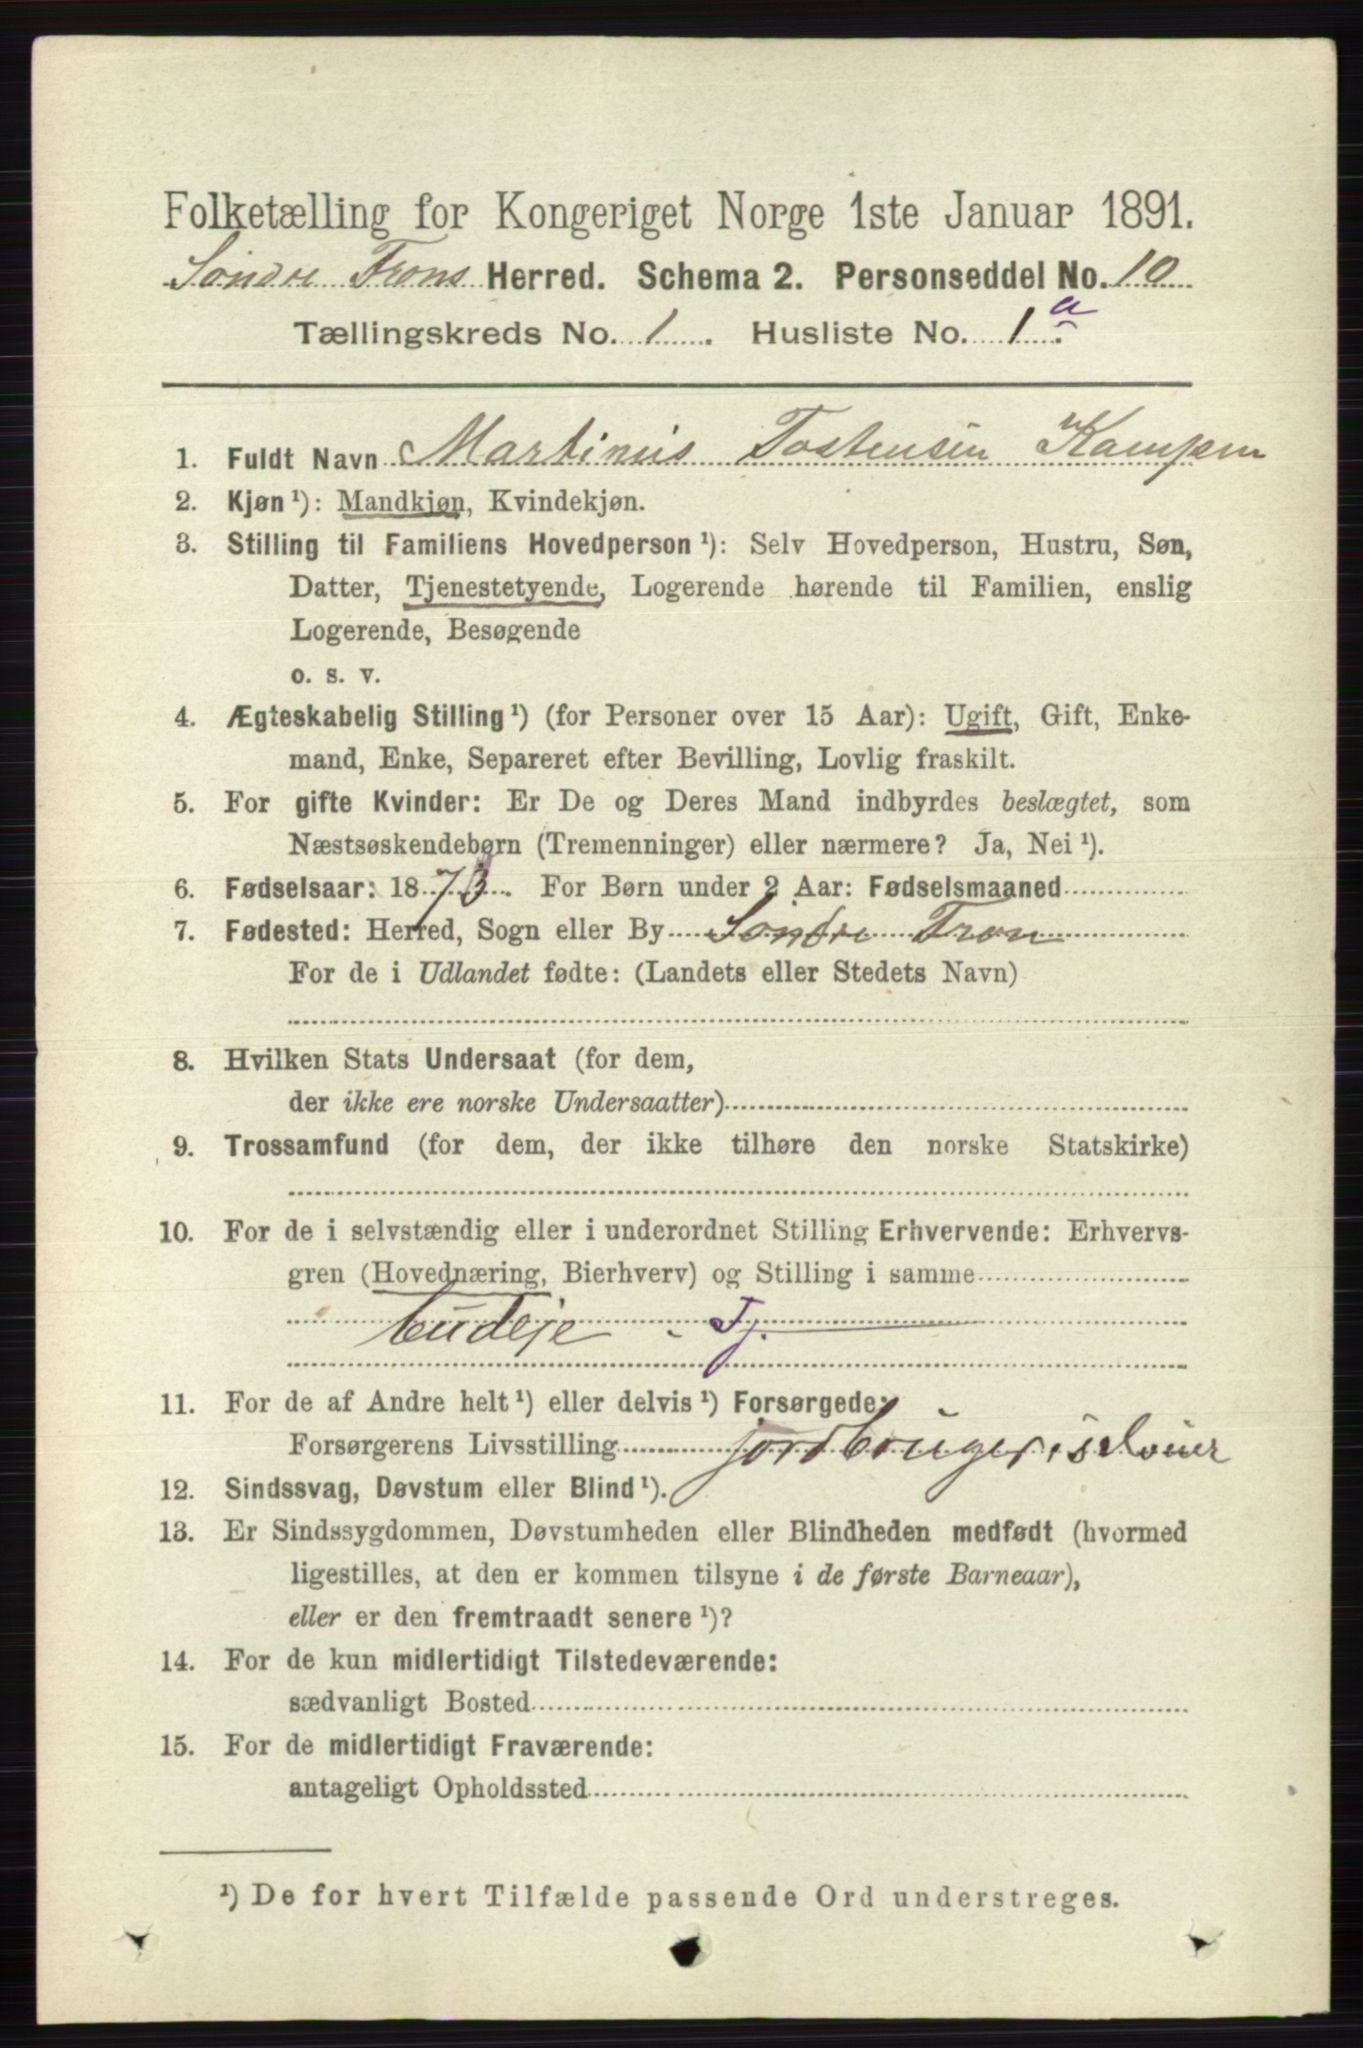 Folketælling for Kongeriget Norge 1ste Januar 1891.
Søndre Frons Herred. Schema 2. Personseddel No. 10
Tællingskreds No. 1. Husliste No. 1 a.
1. Fuldt Navn Martinus Tostensen Kampen
2. Kjøn ¹): Mandkjøn, Kvindekjøn.
3. Stilling til Familiens Hovedperson ¹): Selv Hovedperson, Hustru, Søn,
Datter, Tjenestetyende, Logerende hørende til Familien, enslig
Logerende, Besøgende
o. s. v.
4. Ægteskabelig Stilling ¹) (for Personer over 15 Aar): Ugift, Gift, Enke-
mand, Enke, Separeret efter Bevilling, Lovlig fraskilt.
5. For gifte Kvinder: Er De og Deres Mand indbyrdes beslægtet, som
Næstsøskendebørn (Tremenninger) eller nærmere? Ja, Nei ¹).
6. Fødselsaar: 1873. For Børn under 2 Aar: Fødselsmaaned
7. Fødested: Herred, Sogn eller By Søndre Fron
For de i Udlandet fødte: (Landets eller Stedets Navn)
8. Hvilken Stats Undersaat (for dem,
der ikke ere norske Undersaatter)
9. Trossamfund (for dem, der ikke tilhøre den norske Statskirke)
10. For de i selvstændig eller i underordnet Stilling Erhvervende: Erhvervs-
gren (Hovednæring, Bierhverv) og Stilling i samme
Tj.
11. For de af Andre helt ¹) eller delvis ¹) Forsørgede:
Forsørgerens Livsstilling jordbruger,
12. Sindssvag, Døvstum eller Blind ¹).
13. Er Sindssygdommen, Døvstumheden eller Blindheden medfødt (hvormed
ligestilles, at den er kommen tilsyne i de første Barneaar),
eller er den fremtraadt senere ¹)?
14. For de kun midlertidigt Tilstedeværende:
sædvanligt Bosted
15. For de midlertidigt Fraværende:
antageligt Opholdssted
¹) De for hvert Tilfælde passende Ord understreges.